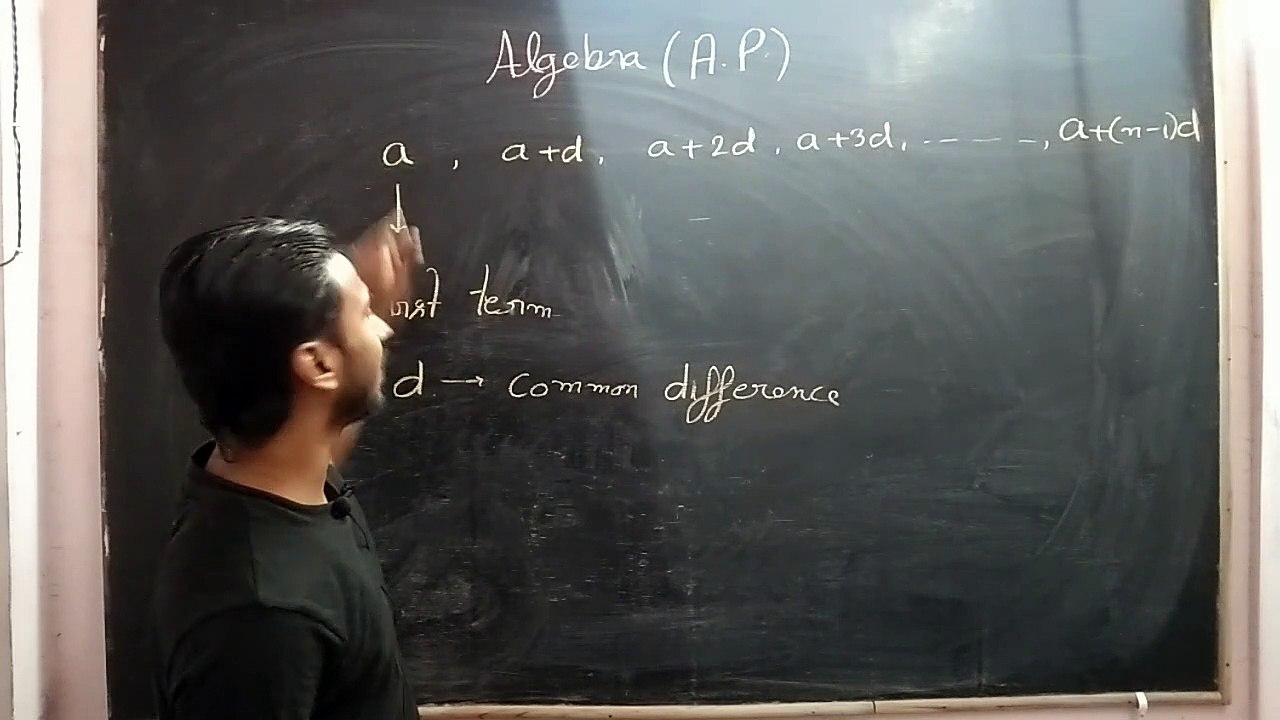 Algebra (A.P.)
a , a+d, a+2d, a+3d, ------, a+(n-1)d
term
d → common difference